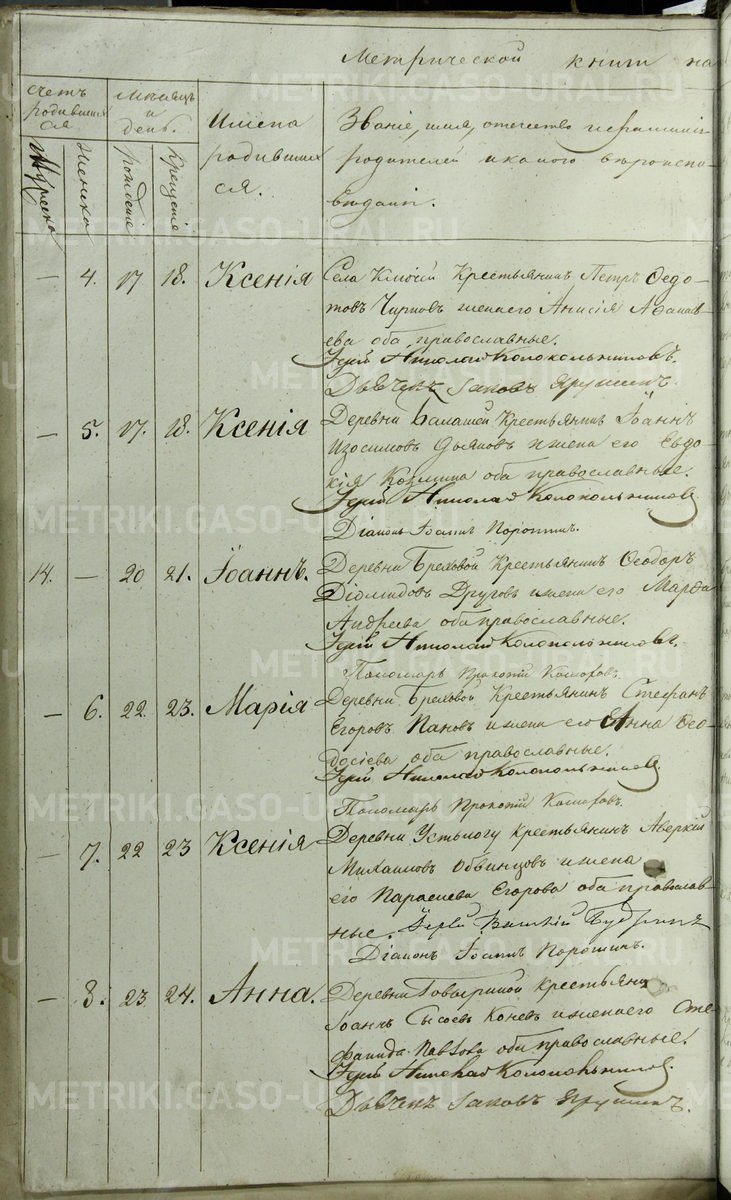 Метрической книги на
Счетъ родившихся
Мѣсяцъ и день.
Имена родившихся.
Званіе, имя, отчество и фамиліи родителей и какого вѣроисповѣданія.
Мужеска
Женска
рожденіе
Крещеніе
— 4. 17 18. Ксенія
Села Ключей Крестьянинъ Петръ Ѳедо-
товъ Чирковъ и жена его Анисія Афанась-
ева оба православные.
Іерей Николай Колокольниковъ.
Дьячекъ Іаковъ Ярушинъ.
— 5. 17. 18. Ксенія
Деревни Балашей Крестьянинъ Іоаннъ
Изосимовъ и жена его Евдо-
кія Козмина оба православные.
Іерей Николай Колокольниковъ
Діаконъ Іоаннъ Порошинъ.
14. — 20 21. Іоаннъ.
Деревни Бреховой Крестьянинъ Ѳеодоръ
Діомидовъ Друговъ и жена его Марѳа
Андреева оба православные.
Іерей Николай Колокольниковъ.
Пономарь Прокопій Комаровъ.
— 6. 22. 23. Марія
Деревни Бреховой Крестьянинъ Стефанъ
Егоровъ Пановъ и жена его Анна Ѳео-
досіева оба православные.
Іерей Николай Колокольниковъ
Пономарь Прокопій Комаровъ.
— 7. 22 23 Ксенія
Деревни Устьлогу Крестьянинъ Аверкій
Михаиловъ Обвинцовъ и жена
его Параскева Егорова оба православ-
ные. Іерей
Діаконъ Іоаннъ Порошинъ.
— 8. 23 24. Анна.
Деревни Крестьянинъ
Іоаннъ Сысоевъ Коневъ и жена его Сте-
фанида Павлова оба православные.
Іерей Николай Колокольниковъ.
Дьячекъ Іаковъ Ярушинъ.
METRIKI.GASO-URAL.RU